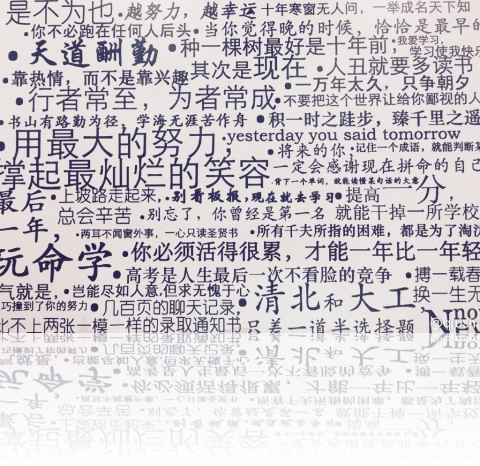 是不为也
越努力，越幸运
十年寒窗无人问，一举成名天下知
你不必跑在任何人后头
当你觉得晚的时候，恰恰是最早的
天道酬勤
种一棵树最好是十年前，
我爱学习，
学习使我快乐
靠热情，而不是靠兴趣
其次是现在
人丑就要多读书
一万年太久，只争朝夕
行者常至，为者常成
不要把这个世界让给你鄙视的人
书山有路勤为径，学海无涯苦作舟
积一时之跬步，臻千里之遥
用最大的努力，
yesterday you said tomorrow
将来的你，
记住一个成语，就能判断某
撑起最灿烂的笑容
一定会感谢现在拼命的自己
背下一个单词，就能读懂某句话的大意
最后一年，
上坡路走起来，
别看板报，现在就去学习
提高一分，
总会辛苦
别忘了，你曾经是第一名
就能干掉一所学校
两耳不闻窗外事，一心只读圣贤书
所有千夫所指的困难，都是为了淘汰
玩命学
你必须活得很累，才能一年比一年轻
高考是人生最后一次不看脸的竞争
搏一载春
气就是，
岂能尽如人意，但求无愧于心
清北和大工，
换一生无
巧撞到了你的努力
几百页的聊天记录，
比不上两张一模一样的录取通知书
只差一道半选择题